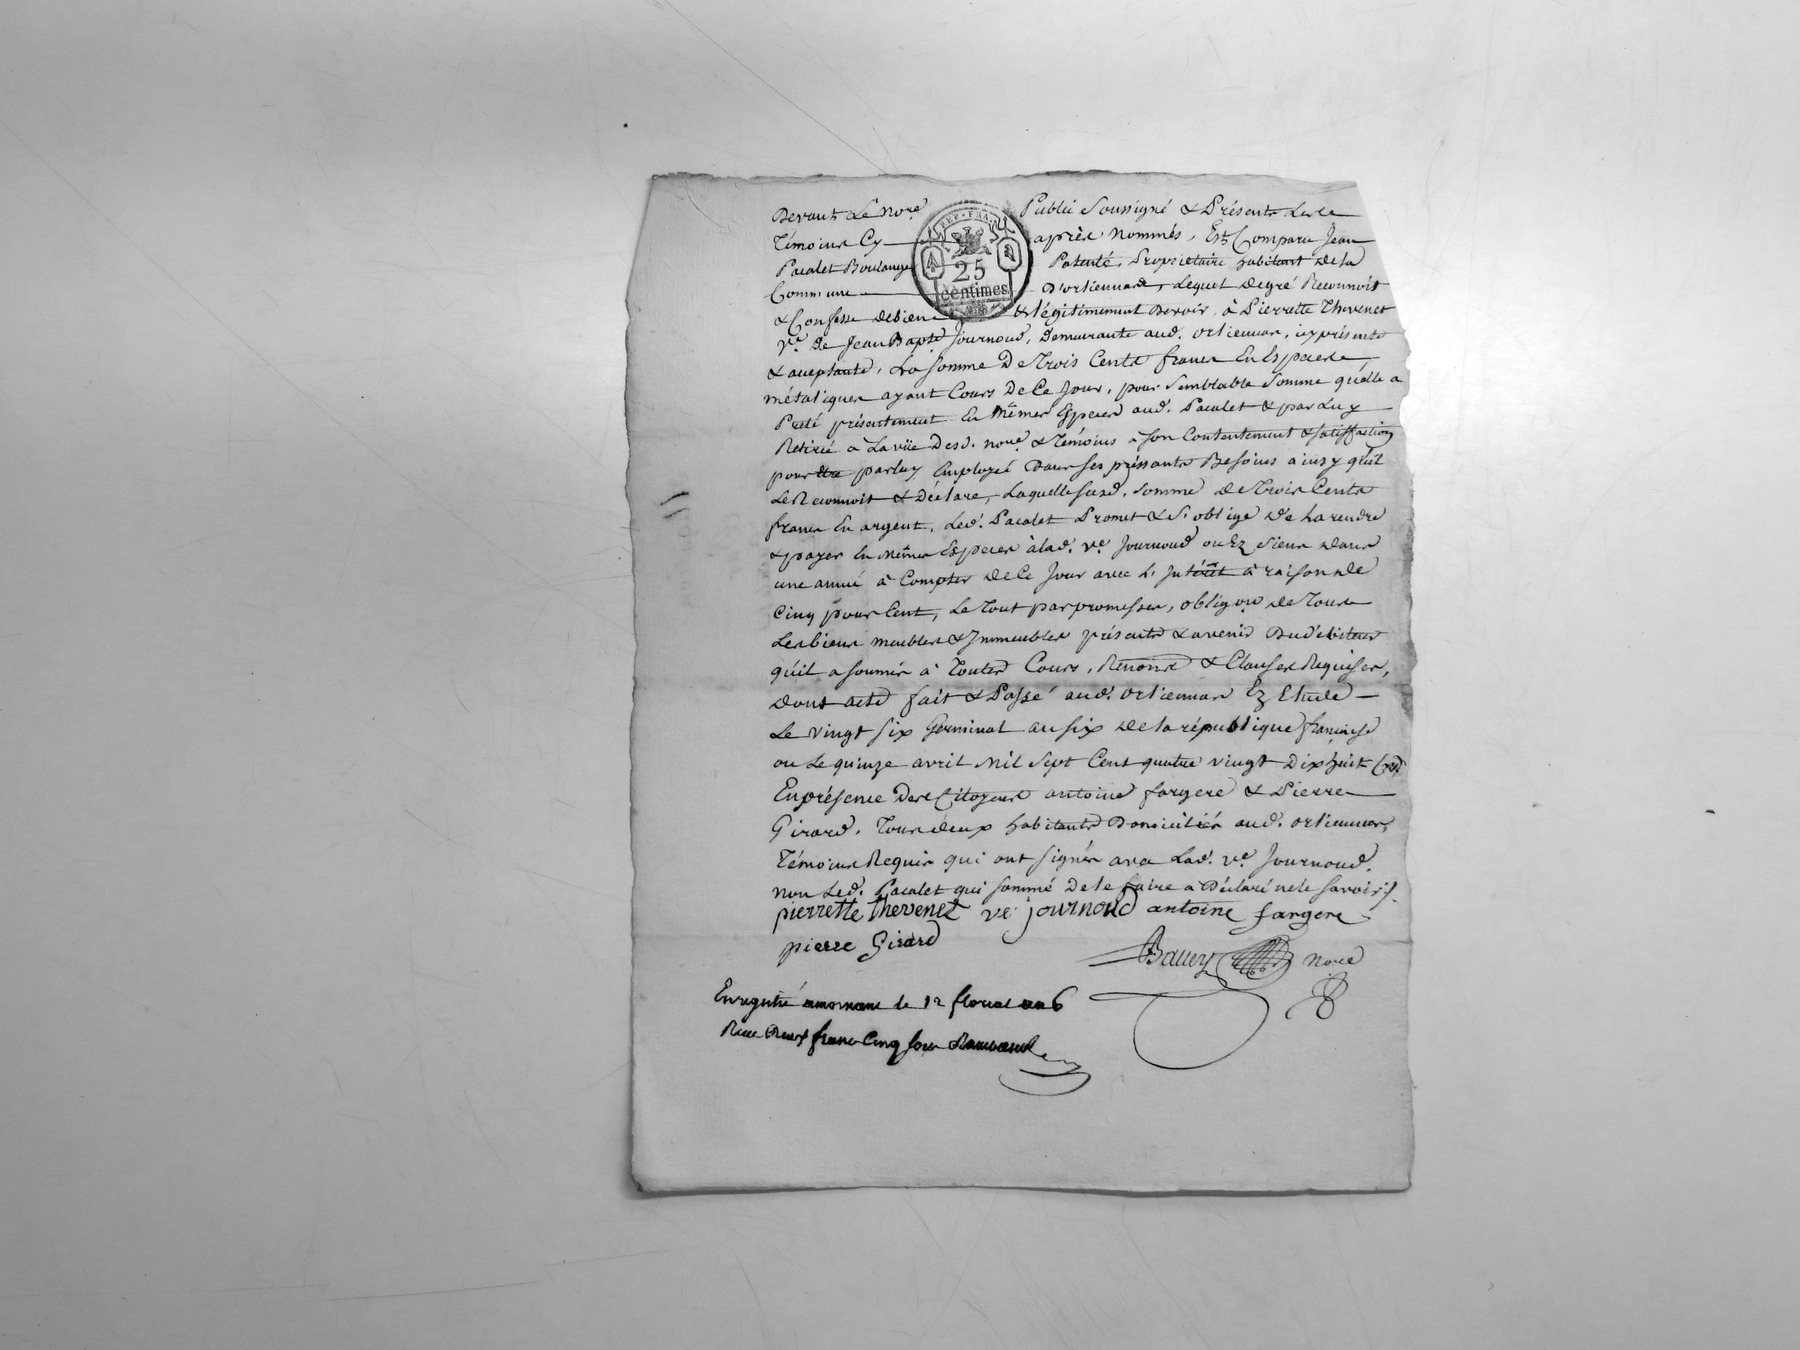 Devant Le Nore Public Soussigné & Présents Les
Témoins Cy après Nommés, Est Comparu Jean
Pacalet Boulanger Patenté, Propriétaire habitant de la
Commune D'orlienas, Lequel de gré Reconnoit
& Confesse debien & légitimement Devoir, à Pierrette Thevenet
Ve. De Jean Bapte Journoud, Demeurante aud. orlienas, icy présente
& acceptante, La Somme De Trois Cents francs En Especes
métaliques ayant Cours De Ce Jour, pour Semblable Somme qu'elle a
Preté présentement En Mêmes Especes aud. Pacalet & par Luy
Retiré à La vüe Desd. nore & Témoins a Son Contentement & satisfaction
pour Etre par luy Employé Dans ses préssants Besoins ainsy qu'il
Le Reconnoit & Déclare, Laquelle susd. Somme de Trois Cents
francs En argent, Led. Pacalet Promet & s'oblige De La rendre
& payer En Mêmes Especes à lad. ve. Journoud ou Ez siens dans
une année à Compter de Ce Jour avec L'Intérêt à raison de
Cinq pour Cent, Le Tout par promesses, obligon de Tous
Les biens meubles & Immeubles présents & avenir Du débiteur
qu'il a soumis à Toutes Cours, Renons & Clauses Requises,
Dont acte fait & Passé aud. orlienas Ez Etude
Le vingt six Germinal an six de la république française
ou Le quinze avril Mil Sept Cent quatre vingt Dix huit
En présence Des Citoyens antoine fargere & Pierre
Girard, Tous deux habitants Domiciliés aud. orlienas,
Témoins Requis qui ont signés avec Lad. ve. Journoud,
non Led. Pacalet qui sommé De le faire a Déclaré ne le savoir
pierrette thevenet ve journoud antoine fargere
pierre Girard
Nore
Enregistré a mornant le 12 floreal an 6
Reçu Deux francs Cinq sous
REP. FRA.
25
centimes